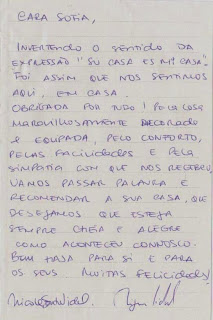 CARA SOFIA,
INVERTENDO O SENTIDO DA
EXPRESSÃO "SU CASA ES MI CASA"
FOI ASSIM QUE NOS SENTIMOS
AQUI, EM CASA.
OBRIGADA POR TUDO! PELA CASA
MARAVILHOSAMENTE DECORADA
E EQUIPADA, PELO CONFORTO,
PELAS FACILIDADES E PELA
SIMPATIA COM QUE NOS RECEBEU.
VAMOS PASSAR PALAVRA E
RECOMENDAR A SUA CASA, QUE
DESEJAMOS QUE ESTEJA
SEMPRE CHEIA E ALEGRE
COMO ACONTECEU CONNOSCO.
BEM HAJA PARA SI E PARA
OS SEUS. MUITAS FELICIDADES!